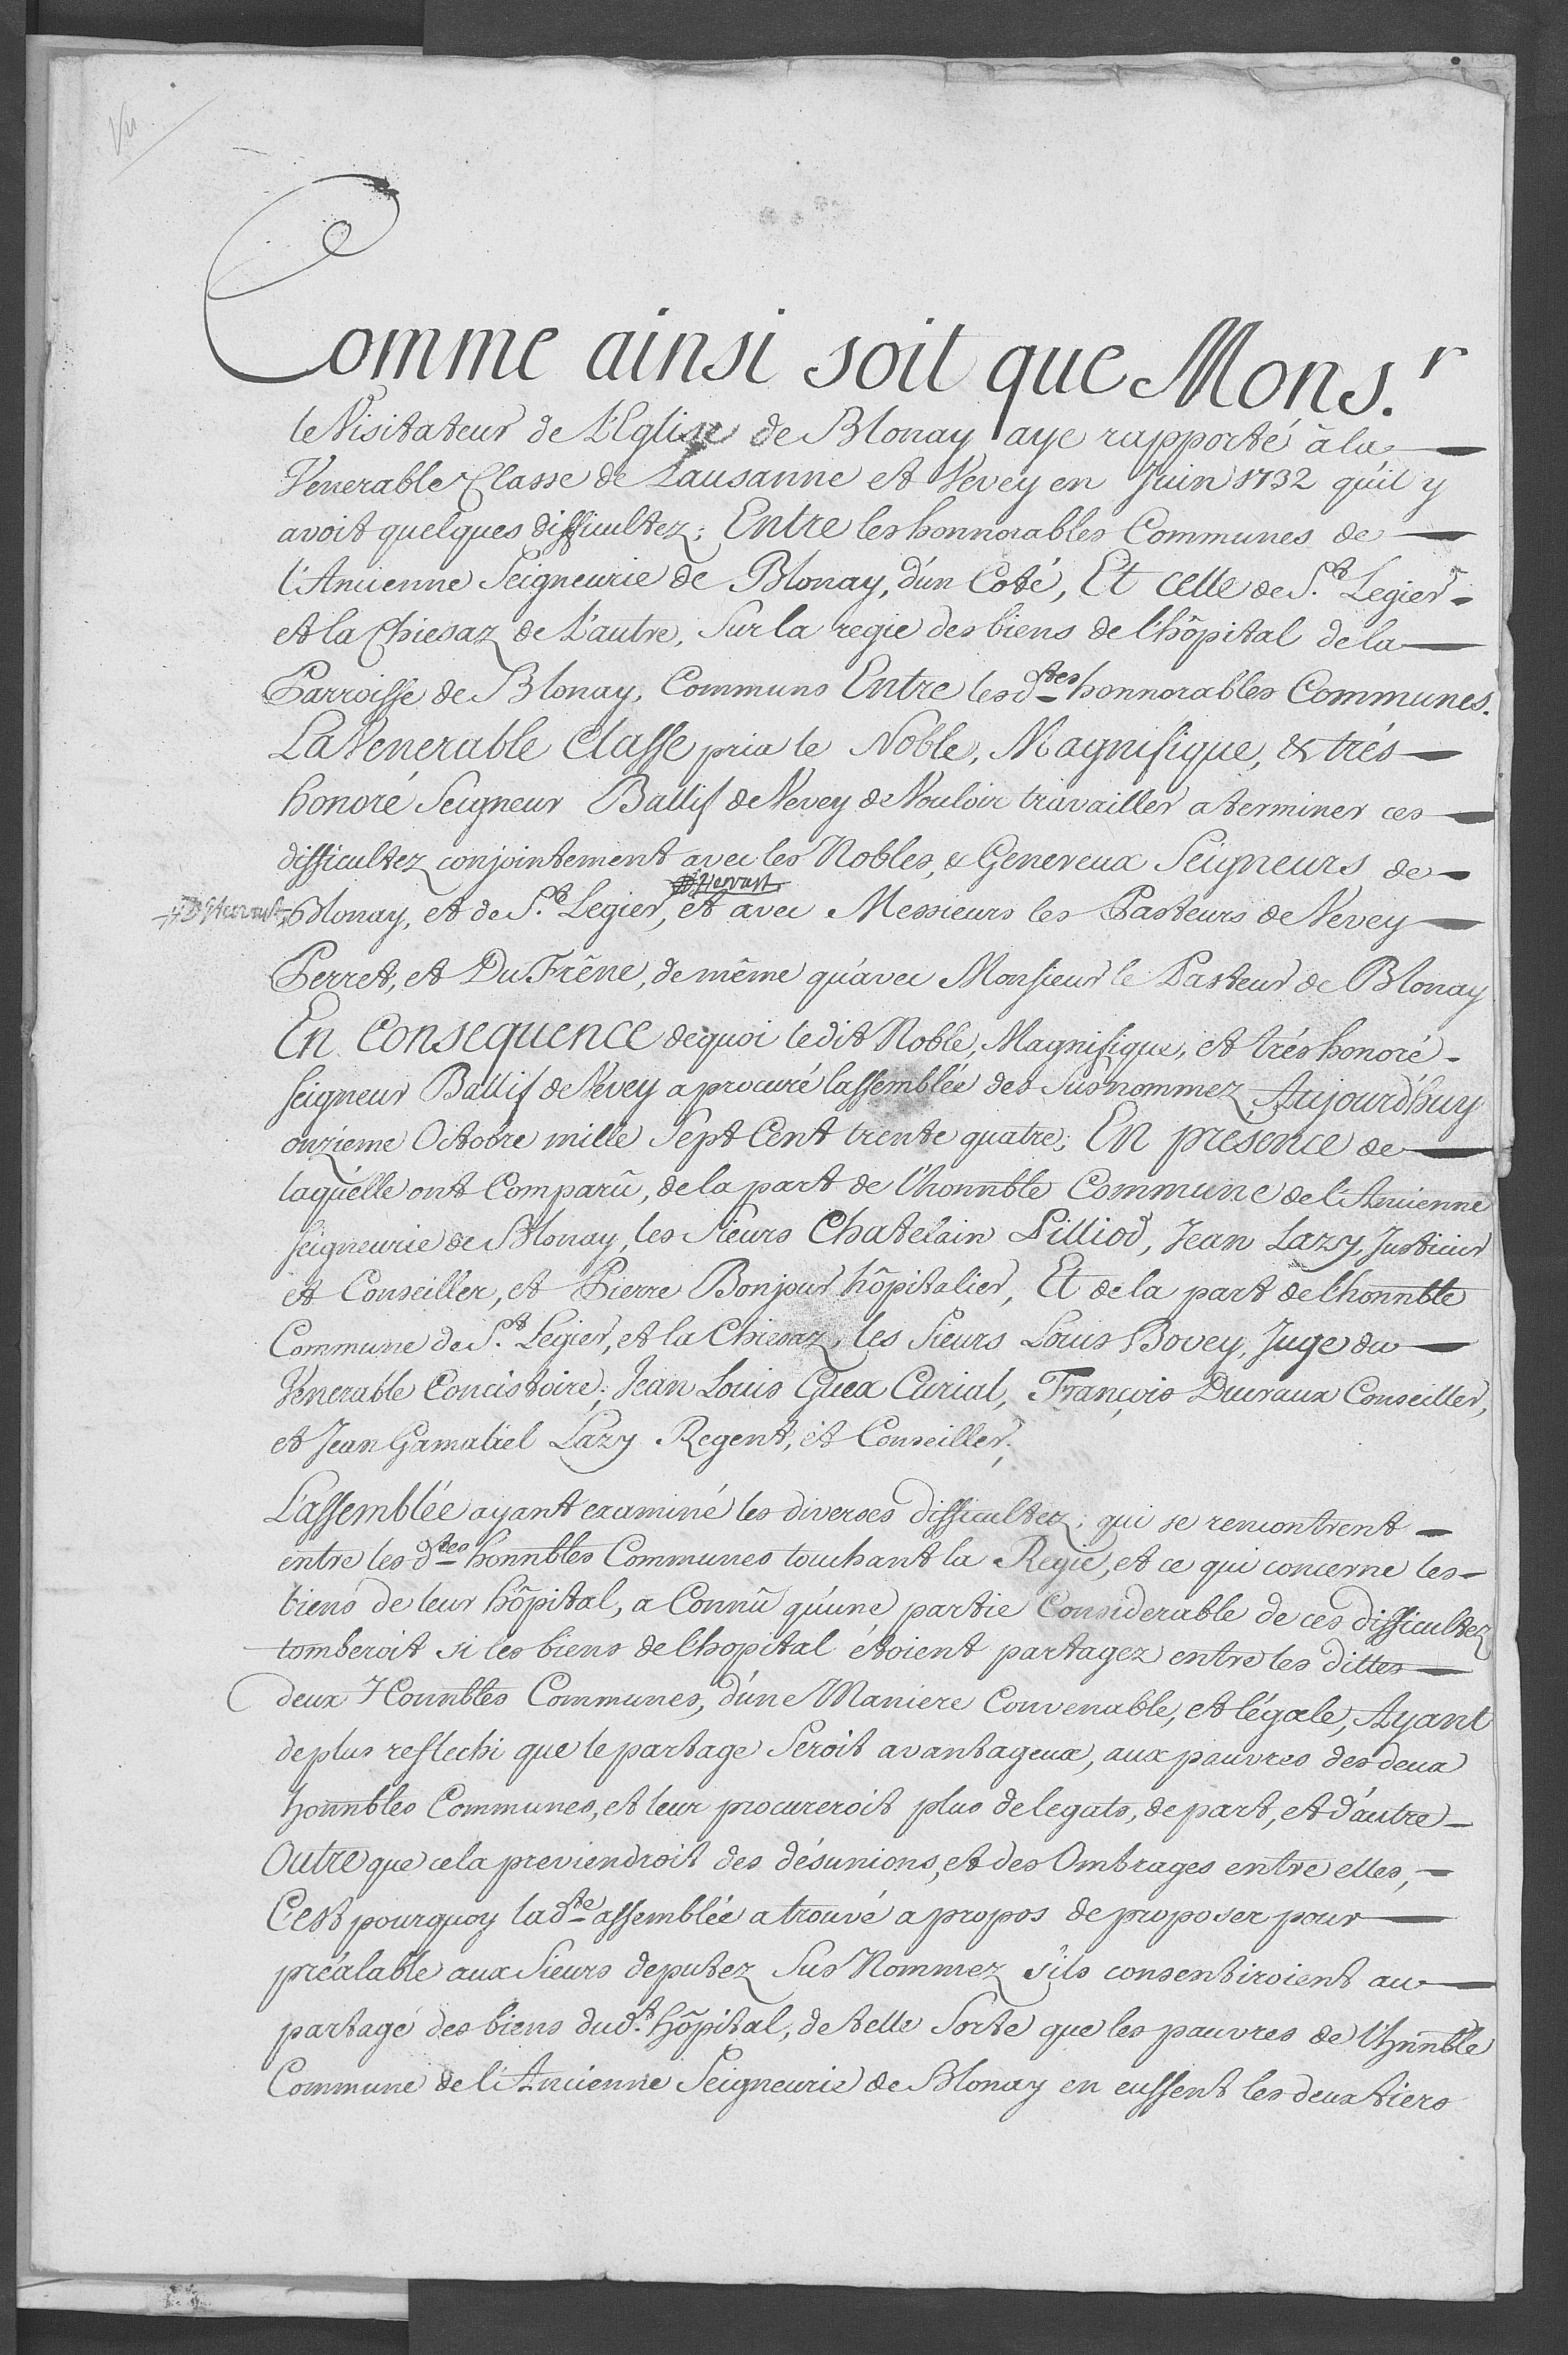 Vu
Comme ainsi soit que Mons.r
le Visitateur de L'Eglise de Blonay aye rapporté à la
Venerable Classe de Lausanne et Vevey en Juin 1732 qu'il y
avoit quelques difficultez; Entre les honnorables Communes de
l'Ancienne Seigneurie de Blonay, d'un Coté, Et celle de S.t Legier
et la Chiesaz de L'autre, Sur la regie des biens de l'hôpital de la
Parroisse de Blonay, Communs Entre les d.tes honnorables Communes.
La Venerable Classe pria le Noble, Magnifique, & trés
honoré Seigneur Ballif de Vevey de Vouloir travailler a terminer ces
difficultez conjointement avec les Nobles, & Genereux Seigneurs de
Blonay, et de S.t Legier, et avec Messieurs les Pasteurs de Vevey
Perret, et Du Frêne, de même qu'avec Monsieur le Pasteur de Blonay
En Consequence dequoi ledit Noble, Magnifique, et trés honoré
seigneur Ballif de Vevey a procuré lassemblée des Susnommez Aujourd'huy
onzieme Octobre mille Sept Cent trente quatre; En presence de
laquelle ont Comparû, de la part de l'honnble Commune de l'Ancienne
seigneurie de Blonay, les Sieurs Chatelain Pilliod, Jean Lazy, Justicier
et Conseiller, et Pierre Bonjour hôpitalier, Et de la part de l'honnble
Commune de S.t Legier, et la Chiesaz, les Sieurs Louis Bovey, Juge du
Venerable Concistoire; Jean Louis Guex Curial, François Ducraux Conseiller,
et Jean Gamaliel Lazy Regent, et Conseiller;
L'assemblée ayant examiné les diverses difficultez; qui se rencontrent
entre les d.tes honnbles Communes touchant la Regie, et ce qui concerne les
biens de leur hôpital, a Connû qu'une partie Considerable de ces difficultez
tomberoit si les biens de l'hopital étoient partagez entre les dittes
deux Honnbles Communes, d'une Maniere Convenable, et légale, Ayant
de plus reflechi que le partage Seroit avantageux, aux pauvres des deux
honnbles Communes, et leur procureroit plus de legats, de part, et d'autre
Outre que cela previendroit des désunions, et des Ombrages entre elles,
C'est pourquoy lad.te assemblée a trouvé a propos de proposer pour
préalable aux Sieurs deputez Sus Nommez s'ils consentiroient au
partage des biens dud.t hôpital, de telle Sorte que les pauvres de l'hnnble
Commune de l'Ancienne Seigneurie de Blonay en eussent les deux tiers